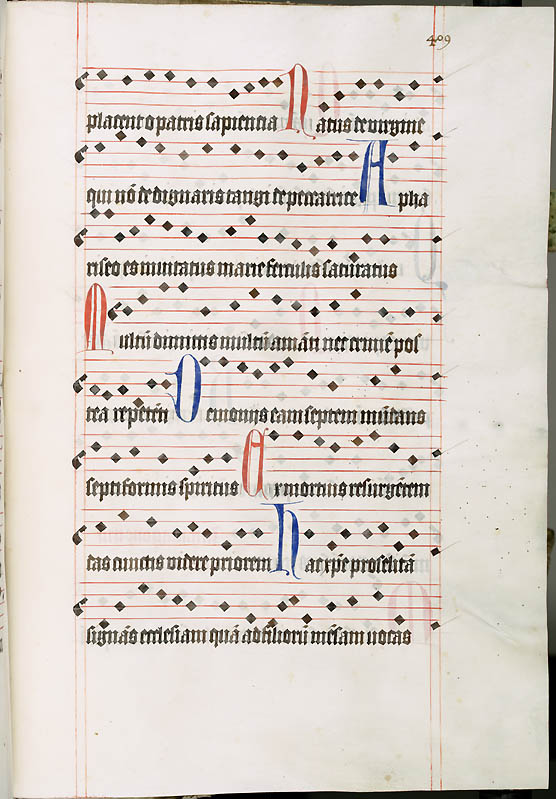 409
placent o patris sapiencia Natus de virgine
qui nō dedignaris tangi de peccatrice A pha
riseo es inuitatus marie ferculis saturatus
Multū dimittis multū amāti nec crimē pos
tea repetēti Demonijs eam septem mūdans
septiformis spiritus Ex mortuis resurgētem
das cunctis videre priorem Hac xp̄e proselitā
signās ecclesiam quā ad filiorū mēsam uocas